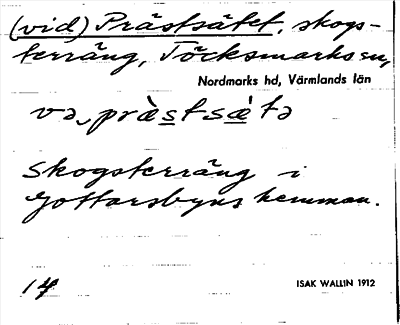 (vid) Prästsätet, skogs-
terräng, Töcksmarks sn,
Nordmarks hd, Värmlands län
və præ̀stsæ̀tə
Skogsterräng i
Gottarsbyns hemman.
14
ISAK WALLIN 1912